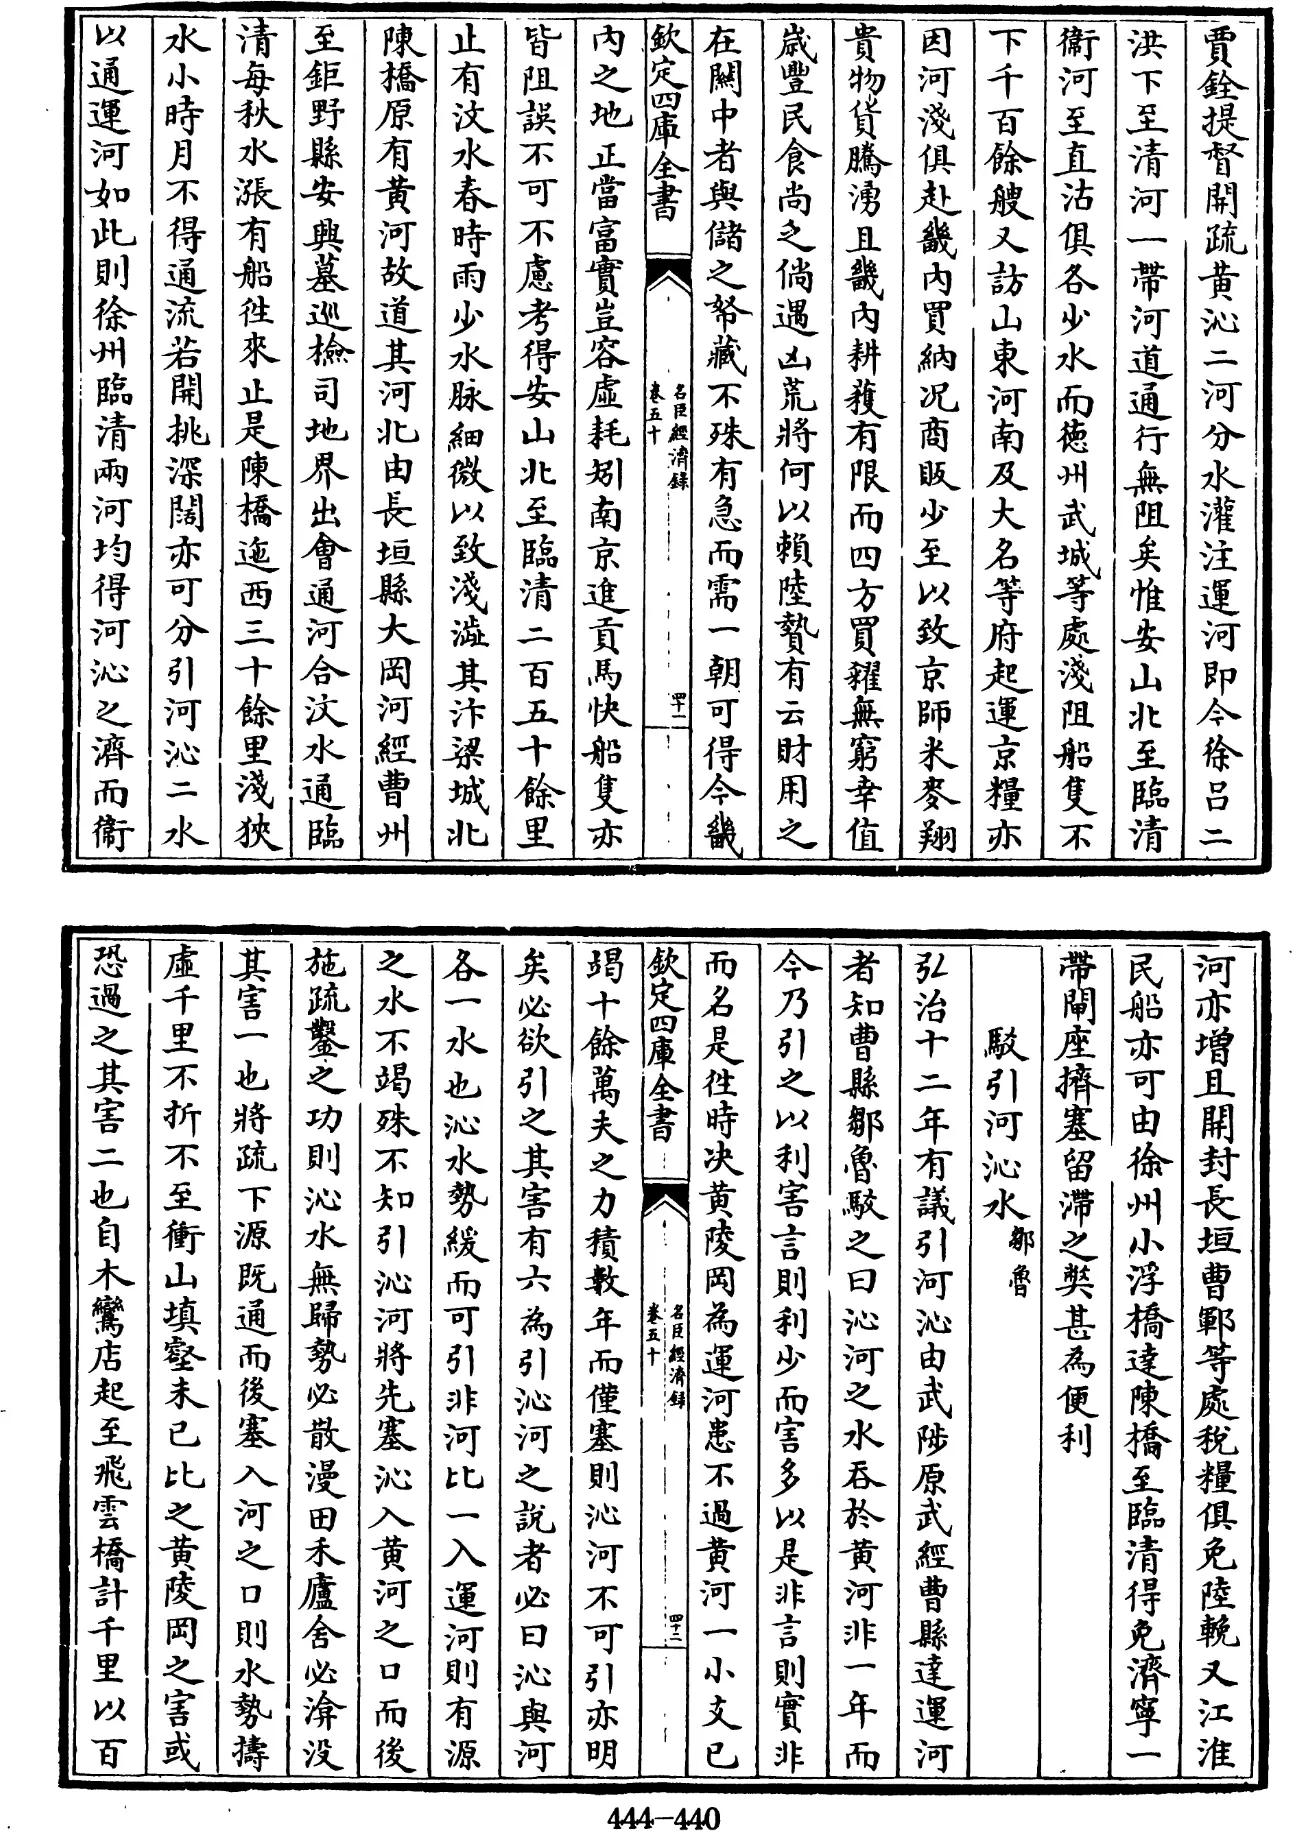 賈銓提督開疏黃沁二河分水灌注運河即今徐吕二
洪下至清河一帶河道通行無阻矣惟安山北至臨清
衞河至直沽俱各少水而徳州武城等處淺阻船隻不
下千百餘艘又訪山東河南及大名等府起運京糧亦
因河淺俱赴畿內買納况商販少至以致京師米麥翔
貴物貨騰湧且畿內耕穫有限而四方買糴無窮幸值
歲豐民食尚乏倘遇凶荒將何以賴陸贄有云財用之
在關中者與儲之帑藏不殊有急而需一朝可得今畿
欽定四庫全書
名臣經濟錄
卷五十
四十一
內之地正當富實豈容虛耗矧南京進貢馬快船隻亦
皆阻誤不可不慮考得安山北至臨清二百五十餘里
止有汶水春時雨少水脉細微以致淺澁其汴梁城北
陳橋原有黃河故道其河北由長垣縣大岡河經曹州
至鉅野縣安興墓巡檢司地界出會通河合汶水通臨
清每秋水漲有船徃來止是陳橋迤西三十餘里淺狹
水小時月不得通流若開挑深闊亦可分引河沁二水
以通運河如此則徐州臨清兩河均得河沁之濟而衞
河亦增且開封長垣曹鄆等處稅糧俱免陸輓又江淮
民船亦可由徐州小浮橋達陳橋至臨清得免濟寧一
帶閘座擠塞留滯之獘甚為便利
駁引河沁水 鄒魯
弘治十二年有議引河沁由武陟原武經曹縣達運河
者知曹縣鄒魯駁之曰沁河之水吞於黃河非一年而
今乃引之以利害言則利少而害多以是非言則實非
而名是徃時决黃陵岡為運河患不過黃河一小支已
欽定四庫全書
名臣經濟錄
卷五十
四十二
竭十餘萬夫之力積數年而僅塞則沁河不可引亦明
矣必欲引之其害有六為引沁河之説者必曰沁與河
各一水也沁水勢緩而可引非河比一入運河則有源
之水不竭殊不知引沁河將先塞沁入黃河之口而後
施疏鑿之功則沁水無歸勢必散漫田禾廬舍必渰没
其害一也將疏下源既通而後塞入河之口則水勢擣
虛千里不折不至衝山填壑未已比之黃陵岡之害或
恐過之其害二也自木鸞店起至飛雲橋計千里以百
444-440